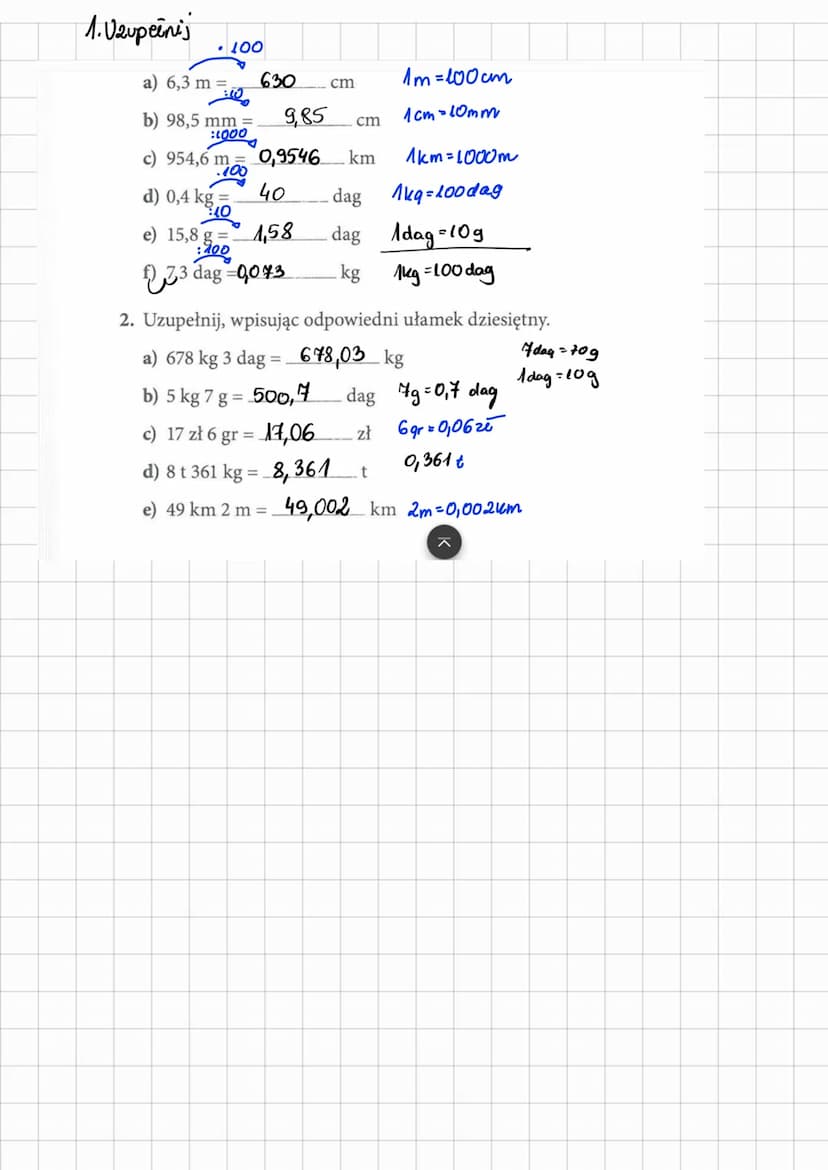 1. Uzupełnij
· 100
a) 6,3 m = 630 cm 1m = 100 cm
:10
b) 98,5 mm = 9,85 cm 1cm = 10mm
:1000
c) 954,6 m = 0,9546 km 1km = 1000m
·100
d) 0,4 kg = 40 dag 1kg = 100 dag
:10
e) 15,8 g = 1,58 dag 1dag = 10g
:100
f) 7,3 dag = 0,073 kg 1kg = 100 dag
2. Uzupełnij, wpisując odpowiedni ułamek dziesiętny.
7dag = 70g
a) 678 kg 3 dag = 678,03 kg 1dag = 10g
b) 5 kg 7 g = 500,7 dag 7g = 0,7 dag
c) 17 zł 6 gr = 17,06 zł 6gr = 0,06 zł
d) 8 t 361 kg = 8,361 t 0,361 t
e) 49 km 2 m = 49,002 km 2m = 0,002km